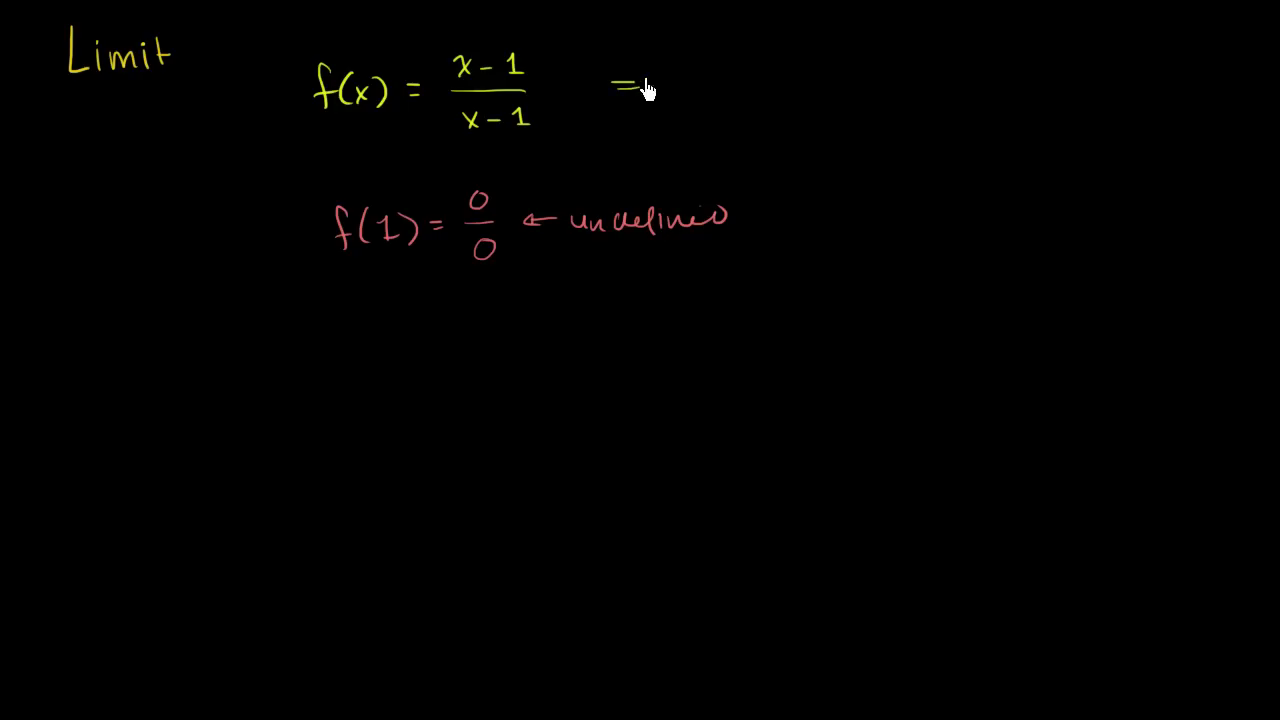 Limit
f(x) = \frac{x-1}{x-1} =
f(1) = \frac{0}{0} ← undefined